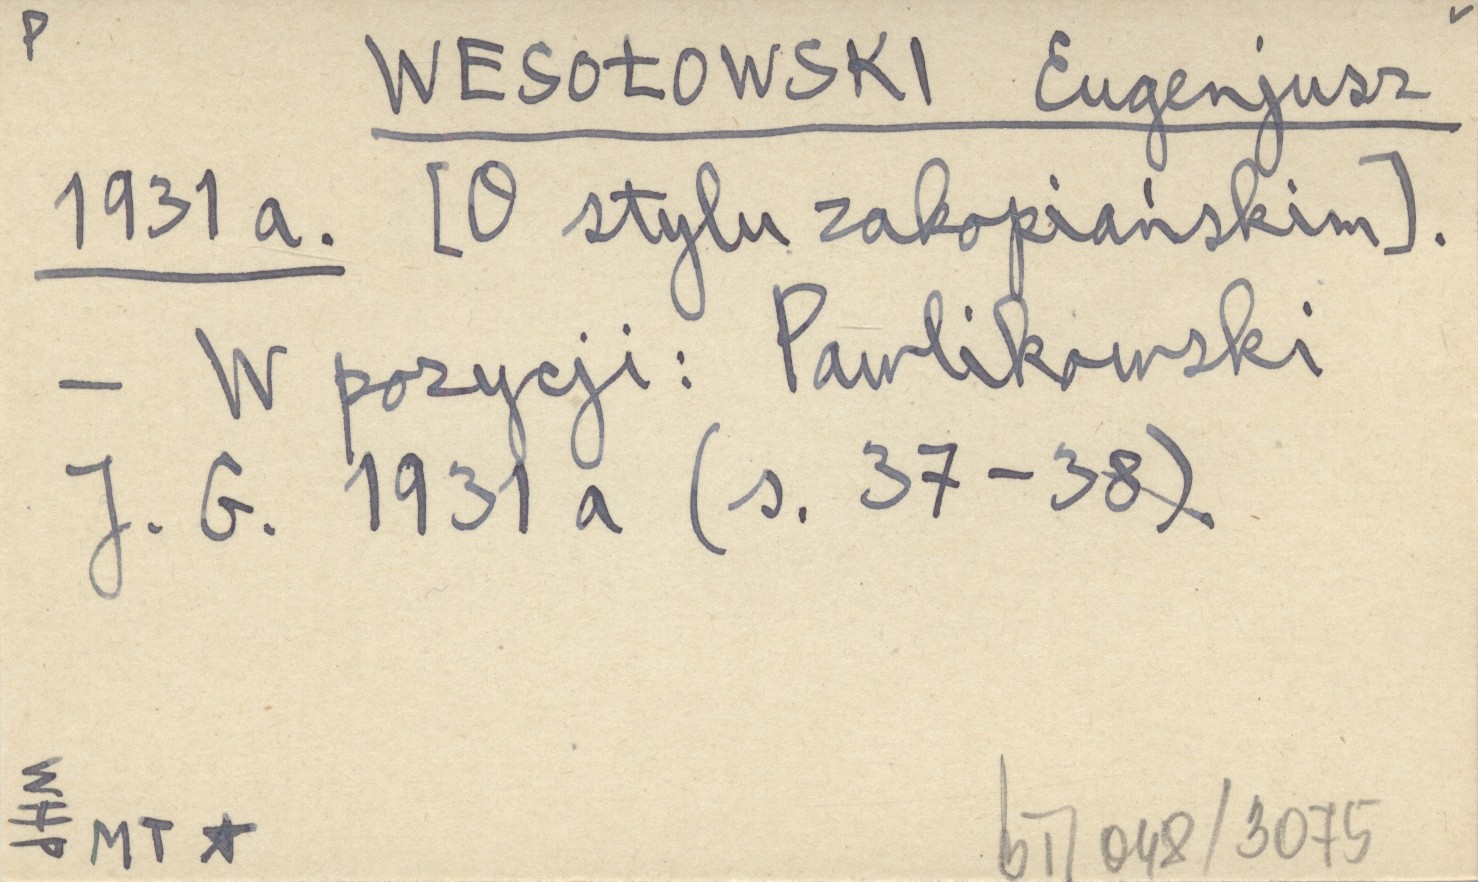 P
WESOŁOWSKI Eugenjusz
1931 a. [O stylu zakopiańskim].
— W pozycji: Pawlikowski
J. G. 1931 a (s. 37-38).
MT ★
048/3075